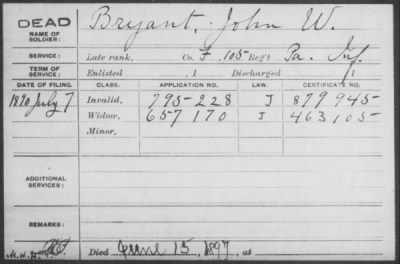 DEAD
NAME OF SOLDIER: Bryant, John W.
SERVICE: Late rank, Co. F, 105 Reg't Pa. Inf.
TERM OF SERVICE: Enlisted , 1 Discharged , 1
DATE OF FILING. CLASS. APPLICATION NO. LAW. CERTIFICATE NO.
1890 July 7 Invalid, 795-228 J 879 945-
Widow, 657 170 J 463 105-
Minor,
ADDITIONAL SERVICES:
REMARKS:
Died June 15, 1897, at